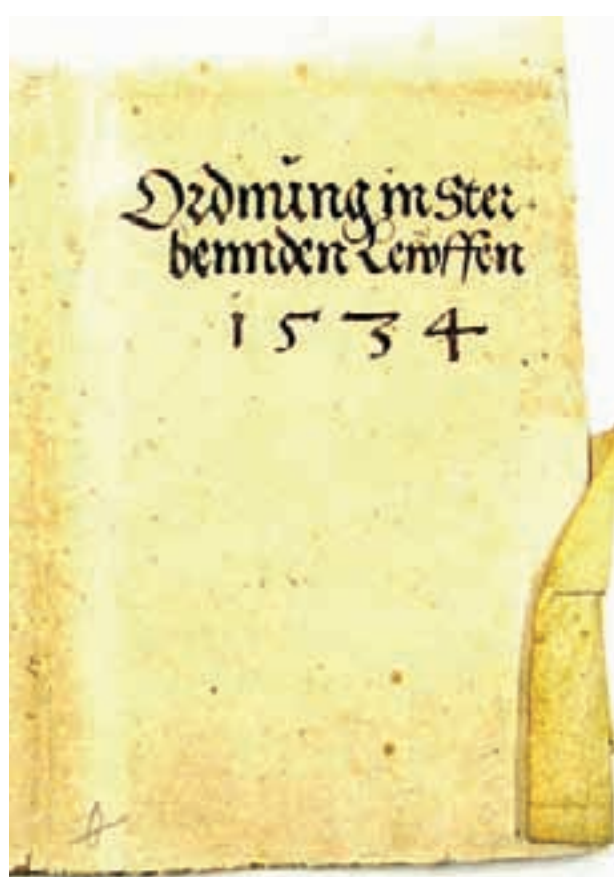 Ordnung in Ster
bennden Lewffen
1534